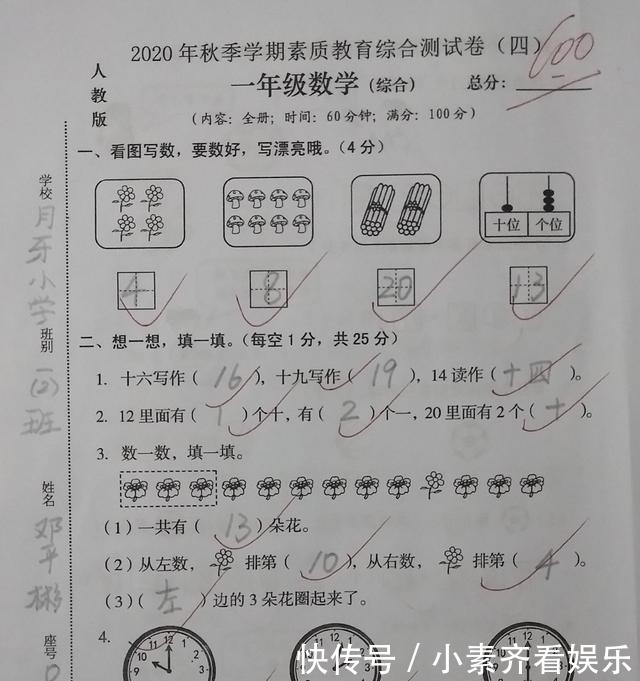 2020年秋季学期素质教育综合测试卷（四）
人教版
一年级数学（综合）
总分：100
（内容：全册；时间：60分钟；满分：100分）
一、看图写数，要数好，写漂亮哦。（4分）
十位 个位
4 8 20 13
二、想一想，填一填。（每空1分，共25分）
1. 十六写作（16），十九写作（19），14读作（十四）。
2. 12里面有（1）个十，有（2）个一，20里面有2个（十）。
3. 数一数，填一填。
（1）一共有（13）朵花。
（2）从左数，排第（10），从右数，排第（4）。
（3）（左）边的3朵花圈起来了。
4.
11 12 1
10 2
9 3
11 12 1
10 2
9 3
11 12 1
10 2
9 3
学校 月牙小学
班别 一(2)班
姓名 邓平彬
座号
快传号 / 小素齐看娱乐